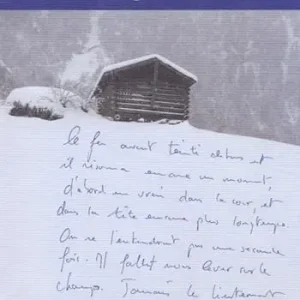 Le feu avait tinté dehors et
il résonna encore un moment,
d'abord en vrai dans la cour, et
dans la tête encore plus longtemps.
On ne l'entendrait pas une seconde
fois. Il fallut nous lever sur le
champ. Jamais le lieutenant